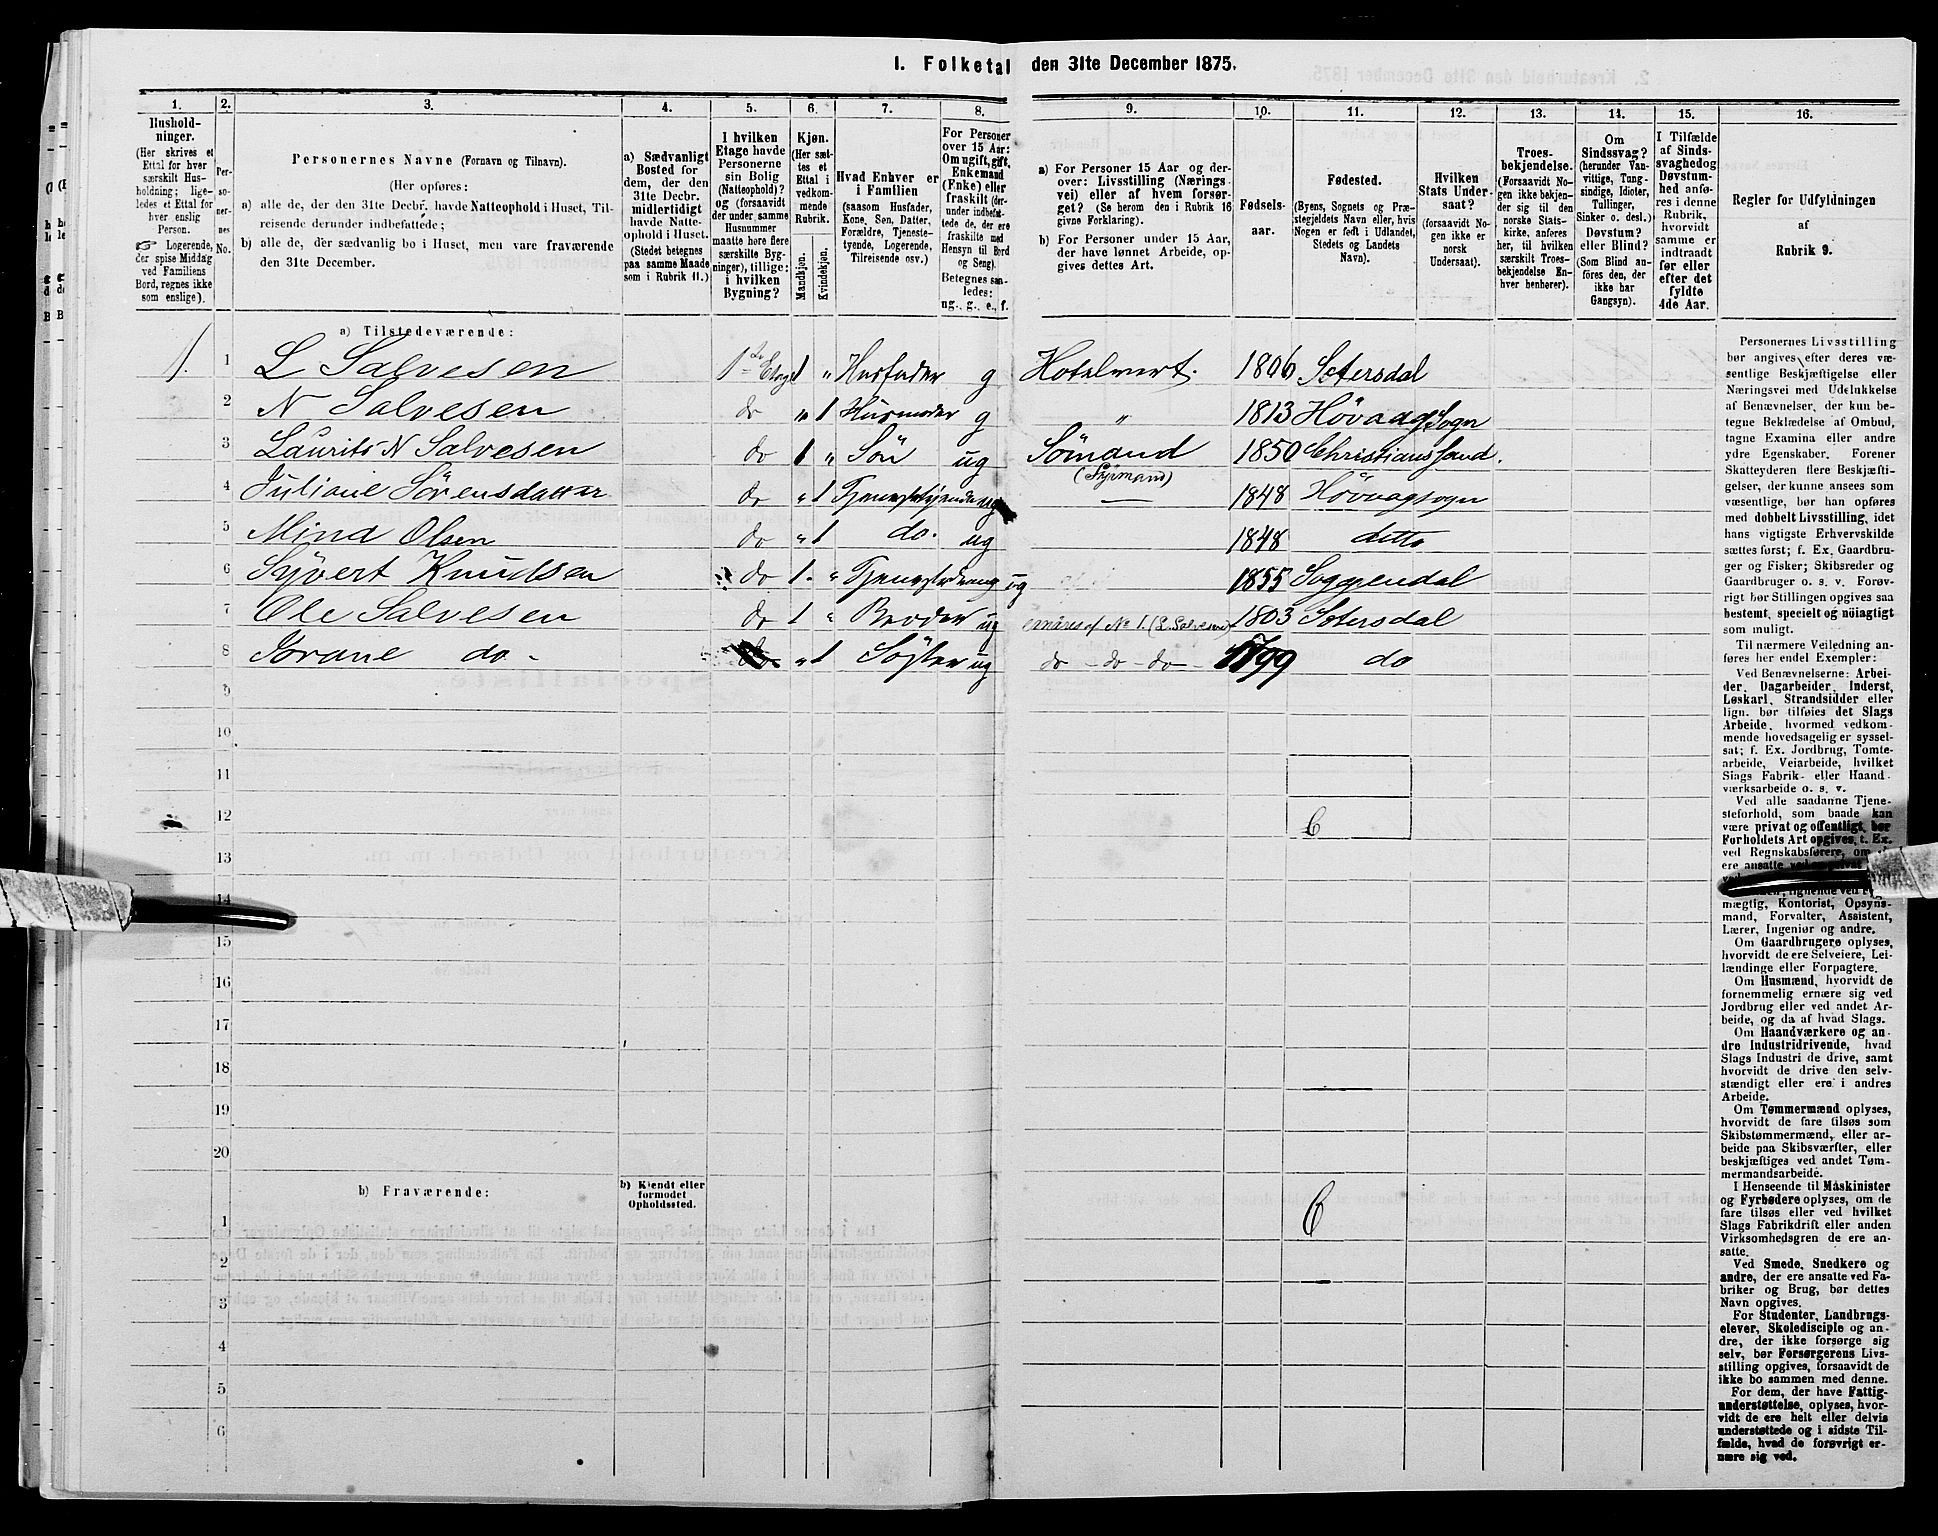 I. Folketal den 31te December 1875.
1. 2. 3. 4. 5. 6. 7. 8. 9. 10. 11. 12. 13. 14. 15. 16.
Hushold-
ninger.
(Her skrives et
Ettal for hver
særskilt Hus-
holdning; lige-
ledes et Ettal for
hver enslig
Person.
☞ Logerende,
der spise Middag
ved Familiens
Bord, regnes ikke
som enslige).
Per-
so-
ner-
nes
No.
Personernes Navne (Fornavn og Tilnavn).
(Her opføres:
a) alle de, der den 31te Decbr. havde Natteophold i Huset, Til-
reisende derunder indbefattede;
b) alle de, der sædvanlig bo i Huset, men vare fraværende
den 31te December.
a) Sædvanligt
Bosted for
dem, der den
31te Decbr.
midlertidigt
havde Natte-
ophold i Huset.
(Stedet betegnes
paa samme Maade
som i Rubrik 11.)
I hvilken
Etage havde
Personerne
sin Bolig
(Natteophold)?
og (forsaavidt
der under samme
Husnummer
maatte høre flere
særskilte Byg-
ninger), tillige:
i hvilken
Bygning?
Kjøn.
(Her sæt-
tes et
Ettal i
vedkom-
mende
Rubrik.
Mandkjøn.
Kvindekjøn.
Hvad Enhver er
i Familien
(saasom Husfader,
Kone, Søn, Datter,
Forældre, Tjeneste-
tyende, Logerende,
Tilreisende osv.)
For Personer
over 15 Aar:
Om ugift, gift,
Enkemand
(Enke) eller
fraskilt (der-
under indbefat-
tede de, der ere
fraskilte med
Hensyn til Bord
og Seng).
Betegnes saa-
ledes:
ug., g., e., f.
a) For Personer 15 Aar og der-
over: Livsstilling (Nærings-
vei) eller af hvem forsør-
get? (Se herom den i Rubrik 16
givne Forklaring).
b) For Personer under 15 Aar,
der have lønnet Arbeide, op-
gives dettes Art.
Fødsels-
aar.
Fødested.
(Byens, Sognets og Præ-
stegjeldets Navn eller, hvis
Nogen er født i Udlandet,
Stedets og Landets
Navn).
Hvilken
Stats Under-
saat?
(forsaavidt No-
gen ikke er
norsk
Undersaat).
Troes-
bekjendelse.
(Forsaavidt No-
gen ikke bekjen-
der sig til den
norske Stats-
kirke, anføres
her, til hvilken
særskilt Troes-
bekjendelse En-
hver henhører).
Om
Sindssvag?
(herunder Van-
vittige, Tung-
sindige, Idioter,
Tullinger,
Sinker o. desl.)
Døvstum?
eller Blind?
(Som Blind an-
føres den, der
ikke har
Gangsyn).
I Tilfælde
af Sinds-
svaghed og
Døvstum-
hed anfø-
res i denne
Rubrik,
hvorvidt
samme er
indtraadt
før eller
efter det
fyldte
4de Aar.
Regler for Udfyldningen
af
Rubrik 9.
a) Tilstedeværende:
1. 1 L Salvesen 1ste Etage 1 " Husfader g Hotelvert. 1806 Setersdal
2 N Salvesen do " 1 Husmoder g " 1813 Høvaag Sogn
3 Laurits N Salvesen do 1 " Søn ug Sømand (Styrmand) 1850 Christianssand.
4 Juliane Sørensdatter do " 1 Tjenestetyende ug — 1848 Høvaagsogn
5 Mind Olsen do " 1 do. ug 1848 ditto
6 Syvert Knudsen do 1 " Tjenestedreng ug 1855 Soggendal
7 Ole Salvesen do 1 " Broder ug ernæres af No 1. (L. Salvesen) 1803 Setersdal
8 Jorane do - " 1 Søster ug do - do - do - 1799 do
9
10
11
12 6
13
14
15
16
17
18
19
20
b) Fraværende:
b) Kjendt eller
formodet
Opholdssted.
1 6
2
3
4
5
6
Personernes Livsstilling
bør angives efter deres væ-
sentlige Beskjæftigelse eller
Næringsvei med Udelukkelse
af Benævnelser, der kun be-
tegne Beklædelse af Ombud,
tagne Examina eller andre
ydre Egenskaber. Forener
Skatteyderen flere Beskjæfti-
gelser, der kunne ansees som
væsentlige, bør han opføres
med dobbelt Livsstilling, idet
hans vigtigste Erhvervskilde
sættes først; f. Ex. Gaardbru-
ger og Fisker; Skibsreder og
Gaardbruger o. s. v. Forøv-
rigt bør Stillingen opgives saa
bestemt, specielt og nøiagtigt
som muligt.
Til nærmere Veiledning an-
føres her endel Exempler:
Ved Benævnelserne: Arbei-
der, Dagarbeider, Inderst,
Løskarl, Strandsidder eller
lign. bør tilføies det Slags
Arbeide, hvormed vedkom-
mende hovedsagelig er syssel-
sat; f. Ex. Jordbrug, Tomte-
arbeide, Veiarbeide, hvilket
Slags Fabrik- eller Haand-
værksarbeide o. s. v.
Ved alle saadanne Tjene-
steforhold, som baade kan
være privat og offentligt, bør
Forholdets Art opgives, t. Ex.
ved Regnskabsførere, om de
ere ansatte ved
mægtig, Kontorist, Opsyns-
mand, Forvalter, Assistent,
Lærer, Ingeniør og andre.
Om Gaardbrugere oplyses,
hvorvidt de ere Selveiere, Lei-
lændinge eller Forpagtere.
Om Husmænd, hvorvidt de
fornemmelig ernære sig ved
Jordbrug eller ved andet Ar-
beide, og da af hvad Slags.
Om Haandværkere og an-
dre Industridrivende, hvad
Slags Industri de drive, samt
hvorvidt de drive den selv-
stændigt eller ere i andres
Arbeide.
Om Tømmermænd oplyses,
hvorvidt de fare tilsøs som
Skibstømmermænd, eller ar-
beide paa Skibsværfter, eller
beskjæftiges ved andet Tøm-
mermandsarbeide.
I Henseende til Maskinister
og Fyrbødere oplyses, om de
fare tilsøs eller ved hvilket
Slags Fabrikdrift eller anden
Virksomhedsgren de ere an-
satte.
Ved Smede, Snedkere og
andre, der ere ansatte ved Fa-
briker og Brug, bør dettes
Navn opgives.
For Studenter, Landbrugs-
elever, Skoledisciple og an-
dre, der ikke forsørge sig
selv, bør Forsørgerens Livs-
stilling opgives, forsaavidt de
ikke bo sammen med denne.
For dem, der have Fattig-
understøttelse, oplyses, hvor-
vidt de ere helt eller delvis
understøttede og i sidste Til-
fælde, hvad de forøvrigt er-
nære sig ved.